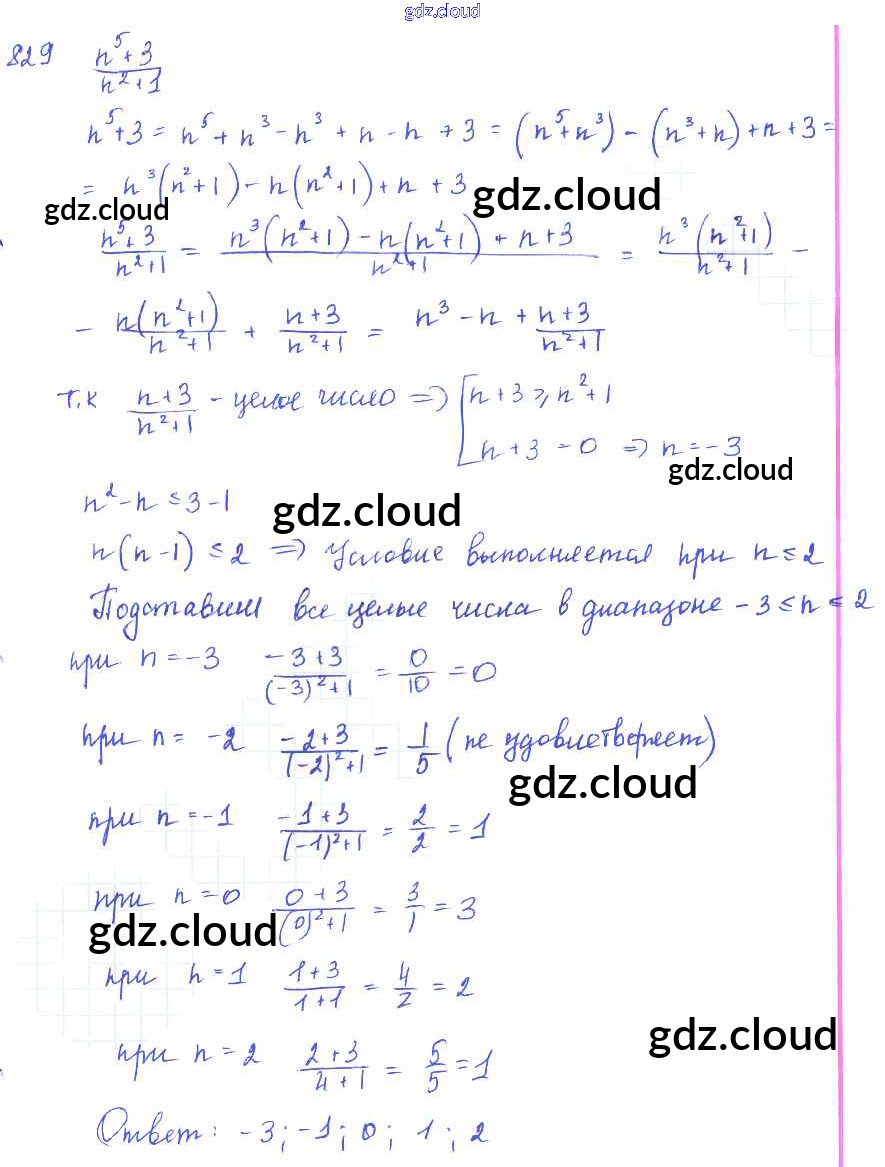 gdz.cloud
829 (n⁵+3)/(n²+1)
n⁵+3 = n⁵ + n³ - n³ + n - n + 3 = (n⁵+n³) - (n³+n) + n + 3 =
= n³(n²+1) - n(n²+1) + n + 3
gdz.cloud gdz.cloud
(n⁵+3)/(n²+1) = (n³(n²+1) - n(n²+1) + n+3)/(n²+1) = n³(n²+1)/(n²+1) -
- n(n²+1)/(n²+1) + (n+3)/(n²+1) = n³ - n + (n+3)/(n²+1)
Т.к (n+3)/(n²+1) - целое число => [ n+3 ⩾ n²+1
n+3 = 0 => n = -3
gdz.cloud
n² - n ≤ 3 - 1
gdz.cloud
n(n-1) ≤ 2 => Условие выполняется при n ≤ 2
Подставим все целые числа в диапазоне -3 ≤ n ≤ 2
при n = -3 (-3+3)/((-3)²+1) = 0/10 = 0
при n = -2 (-2+3)/((-2)²+1) = 1/5 (не удовлетворяет)
gdz.cloud
при n = -1 (-1+3)/((-1)²+1) = 2/2 = 1
при n = 0 (0+3)/((0)²+1) = 3/1 = 3
gdz.cloud
при n = 1 (1+3)/(1+1) = 4/2 = 2
gdz.cloud
при n = 2 (2+3)/(4+1) = 5/5 = 1
Ответ: -3; -1; 0; 1; 2